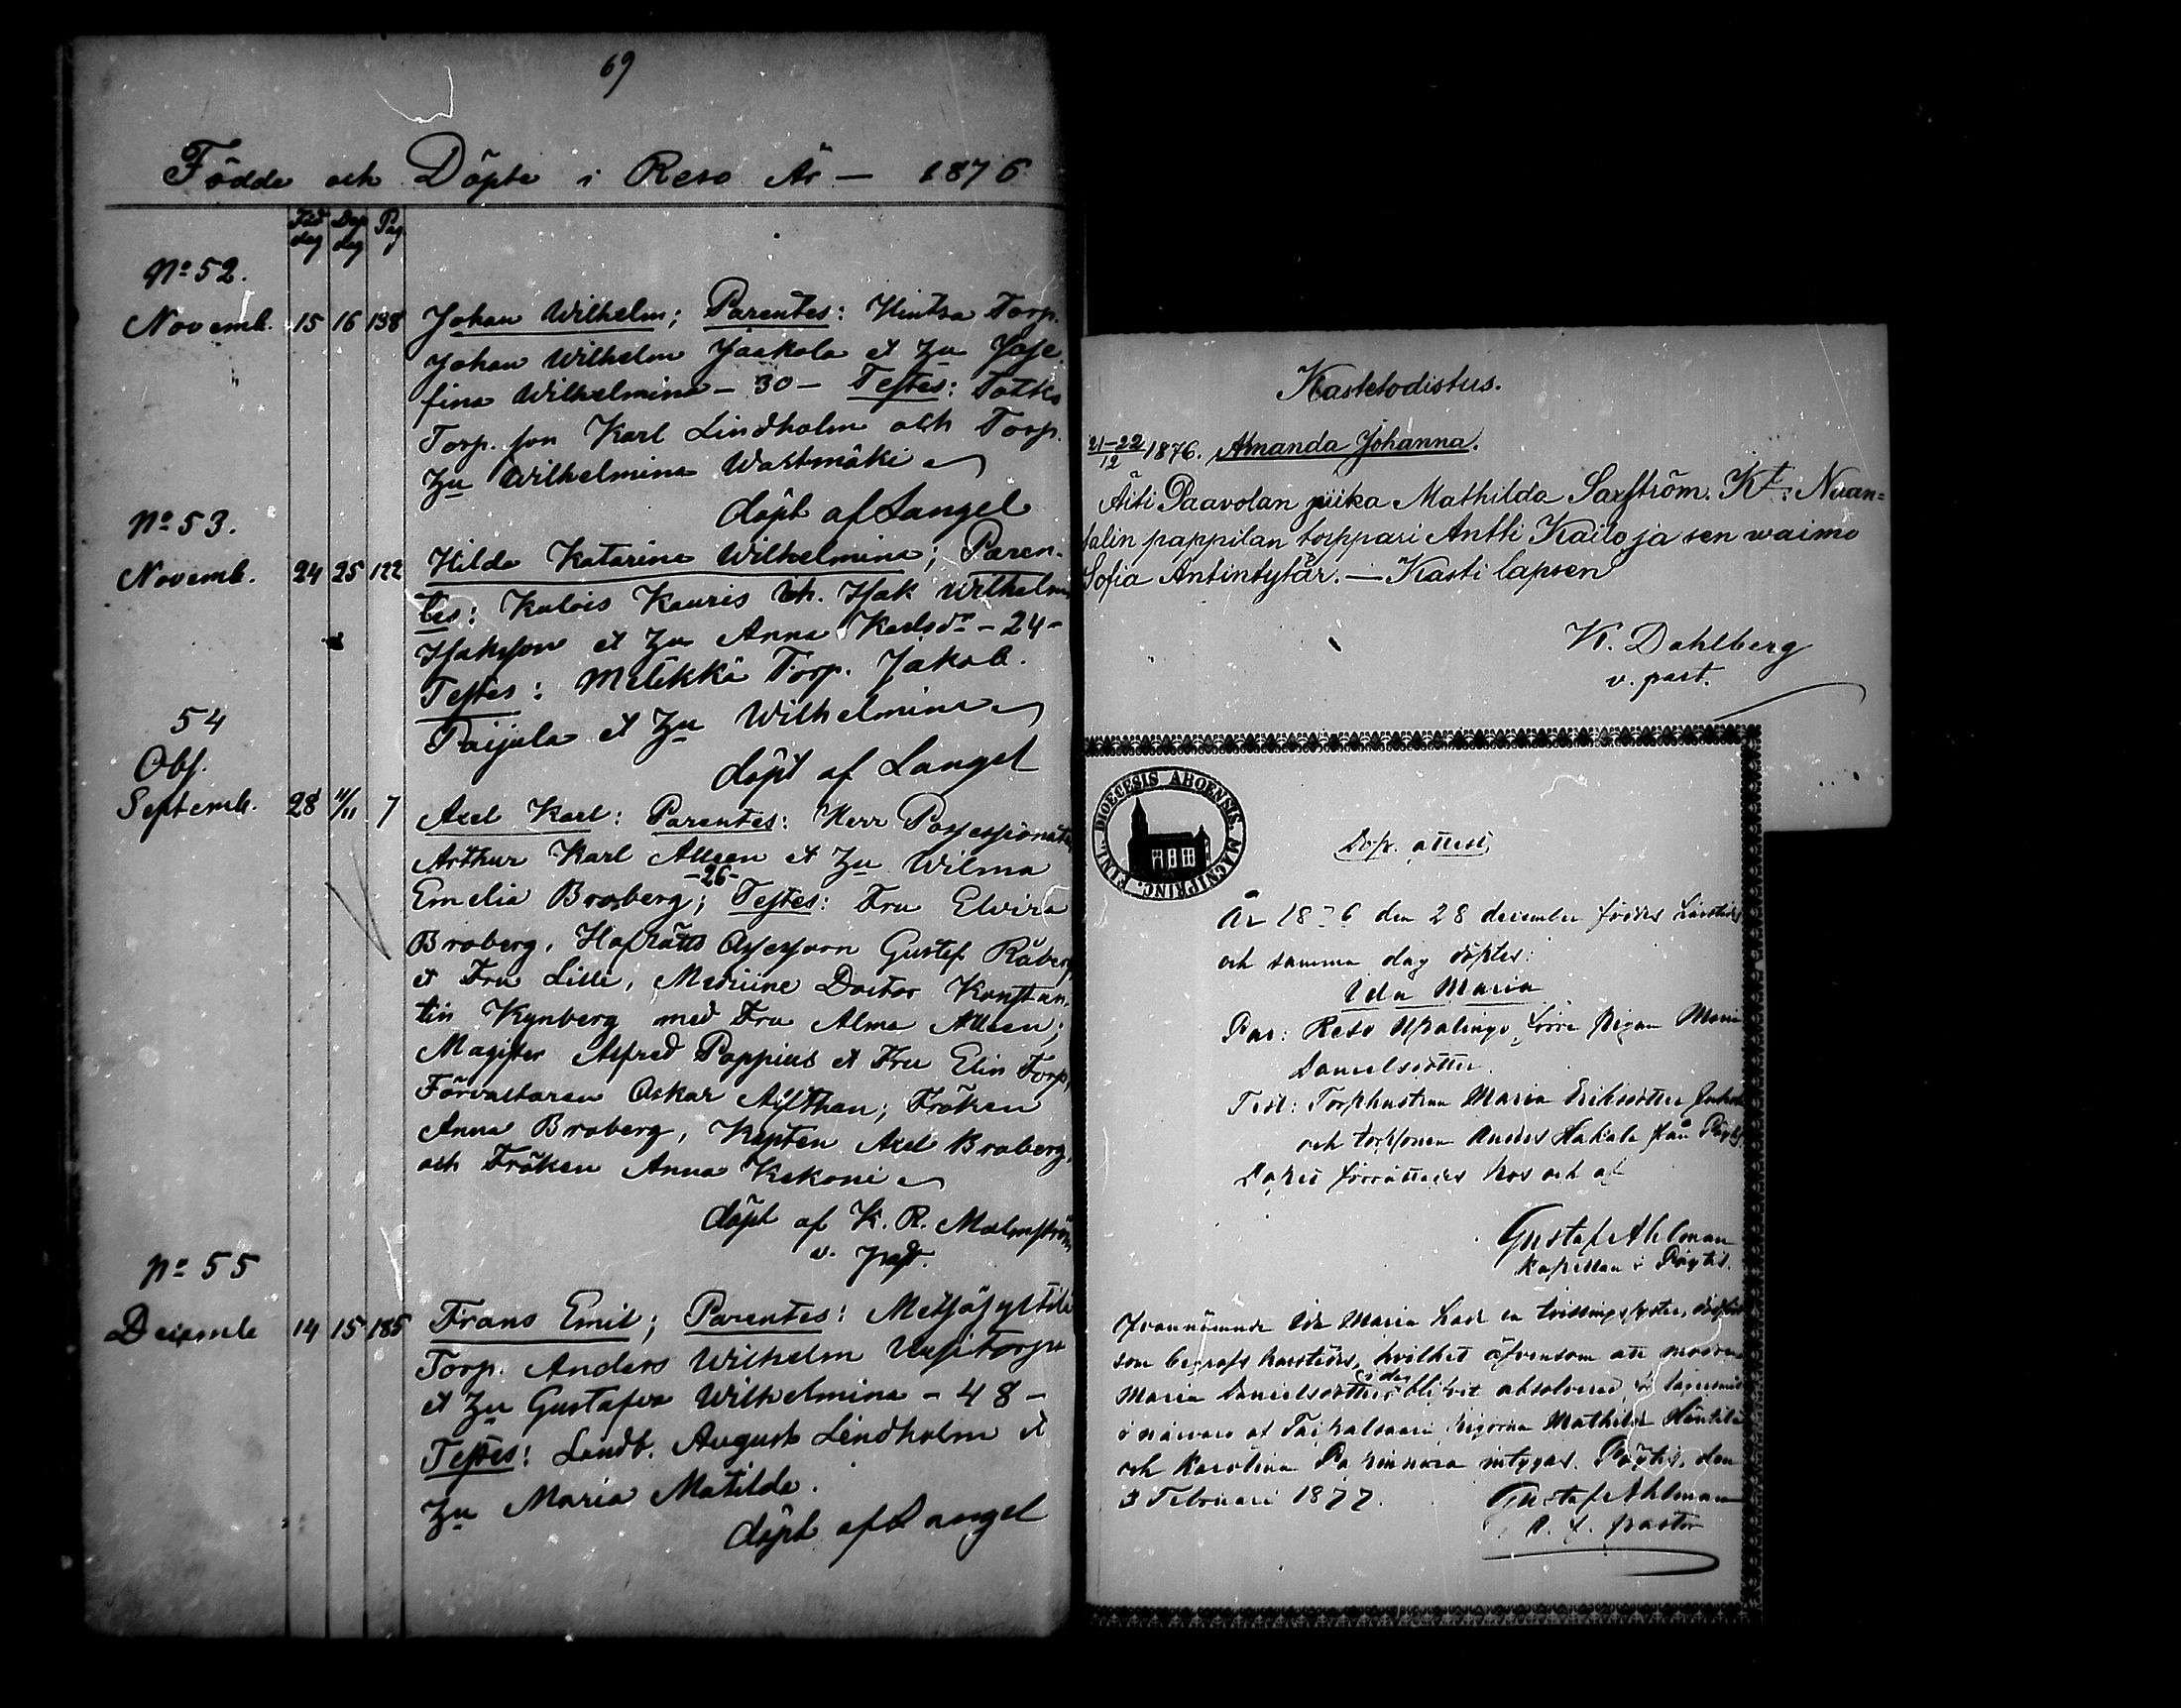 69
Födde och Döpte i Reso År — 1876
Föd dag Döp dag Pag
No 52.
Novemb. 15 16 138 Johan Wilhelm; Parentes: Hintsa Torp.
Johan Wilhelm Jaakola et Hu Jose-
fina Wilhelmina - 30 - Testes: Tottko
Torp. son Karl Lindholm och Torp.
Hu Wilhelmina Wartmäki
döpt af Langel
No 53.
Novemb. 24 25 122 Hilda Katarina Wilhelmina; Paren-
tes: Kulois Kauris Isak Wilhelm
Isaksson et Hu Anna Karlsdr - 24 -
Testes: Melikkä Torp. Jakob
Paijula et Hu Wilhelmina
döpt af Langel
54
Obs.
Septemb. 28 11/11 7 Axel Karl: Parentes: Herr Possessionaten
Arthur Karl Alleen et Hu Wilma
Emelia Broberg; -26- Testes: Fru Elvira
Broberg, Hofrätts Assessorn Gustef Råberg
et Fru Lilli, Medicine Doctor Konstan-
tin Kynberg med Fru Alma Alleen;
Magister Alfred Poppius et Fru Elin Torp,
Förvaltaren Oskar Alfthan; Fröken
Anna Broberg, Kapten Axel Broberg,
och Fröken Anna Kekoni
döpt af K. R. Malmström
v. past.
No 55
Decembr 14 15 185 Frans Emil; Parentes:
Torp. Anders Wilhelm Uusitorpa
et Hu Gustafva Wilhelmina - 48 -
Testes: Landb. August Lindholm et
Hu Maria Matilda.
döpt af Langel
Kastetodistus.
21-22/12 1876. Amanda Johanna.
Äiti Paavolan piika Mathilda Saxström. Kt: Naan-
talin pappilan torppari Antti Kailo ja sen waimo
Sofia Antintytär. — Kasti lapsen
K. Dahlberg
v. past.
DIOECESIS ABOENSIS. MAGNI PRINC. FINL.
Dop. attest
År 1876 den 28 december föddes härstädes
och samma dag döptes:
Ida Maria
Par: Reso Upalingo, förra pigan Maria
Danielsdotter.
Test: Torphustrun Maria Eriksdotter
och torpsonen Anders Hakala från Pöytis.
Dopet förrättades hos och af
Gustaf Ahlman
Kapellan i Pöytis.
Ofvannämnde Ida Maria hade en tvillingsyster, dödfödd
som begrafs härstädes, hvilket äfvensom att modren
Maria Danielsdotter i dag blifvit absolverad
i närvaro af pigorna Mathilda Häntilä
och Karolina intygas. Pöytis, den
3 Februari 1877. Gustaf Ahlman
v. f. pastor